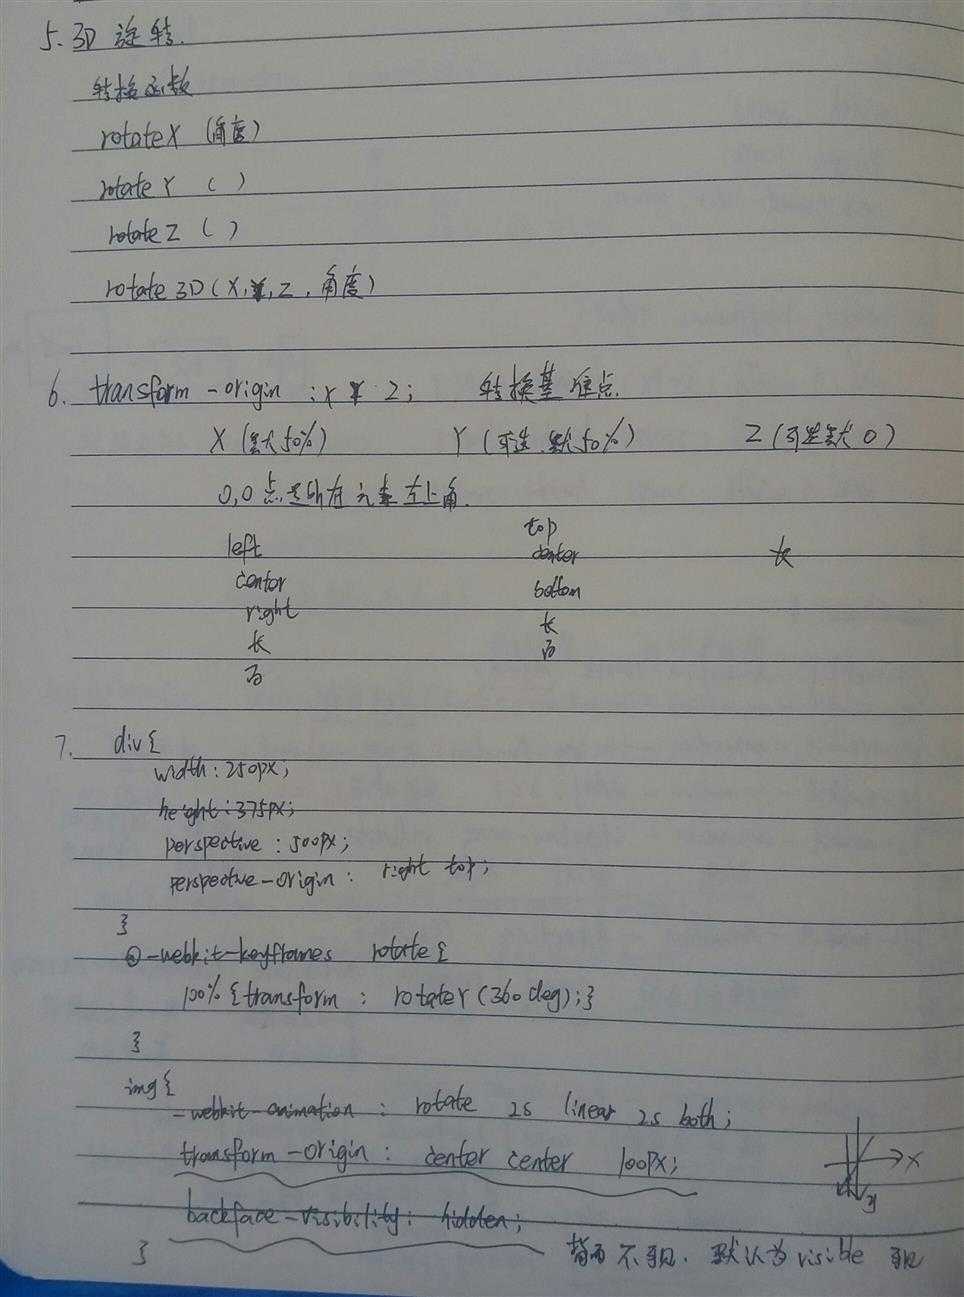 5. 3D 旋转.
转换函数
rotateX (角度)
rotateY ( )
rotateZ ( )
rotate3D(X,Y,Z,角度)
6. transform-origin : X Y Z; 转换基准点.
X (默认50%) Y (可选 默50%) Z (可选默 0)
0,0点是所在元素左上角.
left top
center center 长
right bottom
长 长
百 百
7. div{
width:250px;
height:375px;
perspective:500px;
perspective-origin: right top;
}
@-webkit-keyframes rotate{
100%{transform: rotateY(360deg);}
}
img{
-webkit-animation: rotate 2s linear 2s both;
transform-origin: center center 100px;
x
y
backface-visibility: hidden;
} 背面不可见. 默认为visible 可见